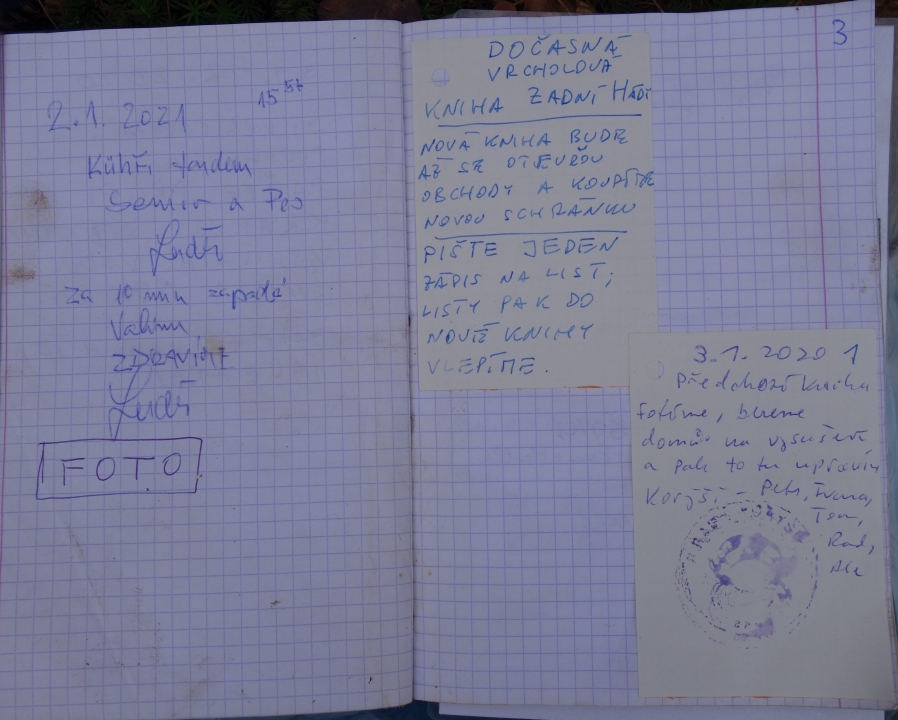 2.1. 2021 15 57
tandem
Senior a Pes
Luděk
Za 10 min zapadá
ZDRAVÍME
Luděk
FOTO
3
DOČASNÁ
VRCHOLOVÁ
KNIHA ZADNÍ HÁDÍ
NOVÁ KNIHA BUDE
AŽ SE OTEVŘOU
OBCHODY A KOUPÍME
NOVOU SCHRÁNKU
PIŠTE JEDEN
ZÁPIS NA LIST,
LISTY PAK DO
NOVÉ KNIHY
VLEPÍME.
3.1. 2020 1
Předchozí knihu
fotíme, bereme
domů na vysušení
a pak to tu upravím
Korýši - Petr, Ivana,
Tom,
Rad,